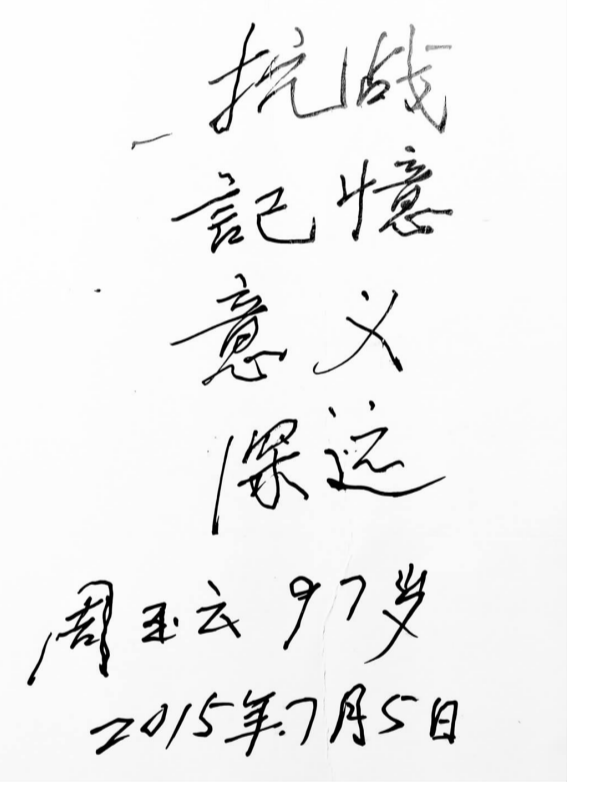 抗战
記憶
意义
深远
周玉云 97岁
2015年.7月5日